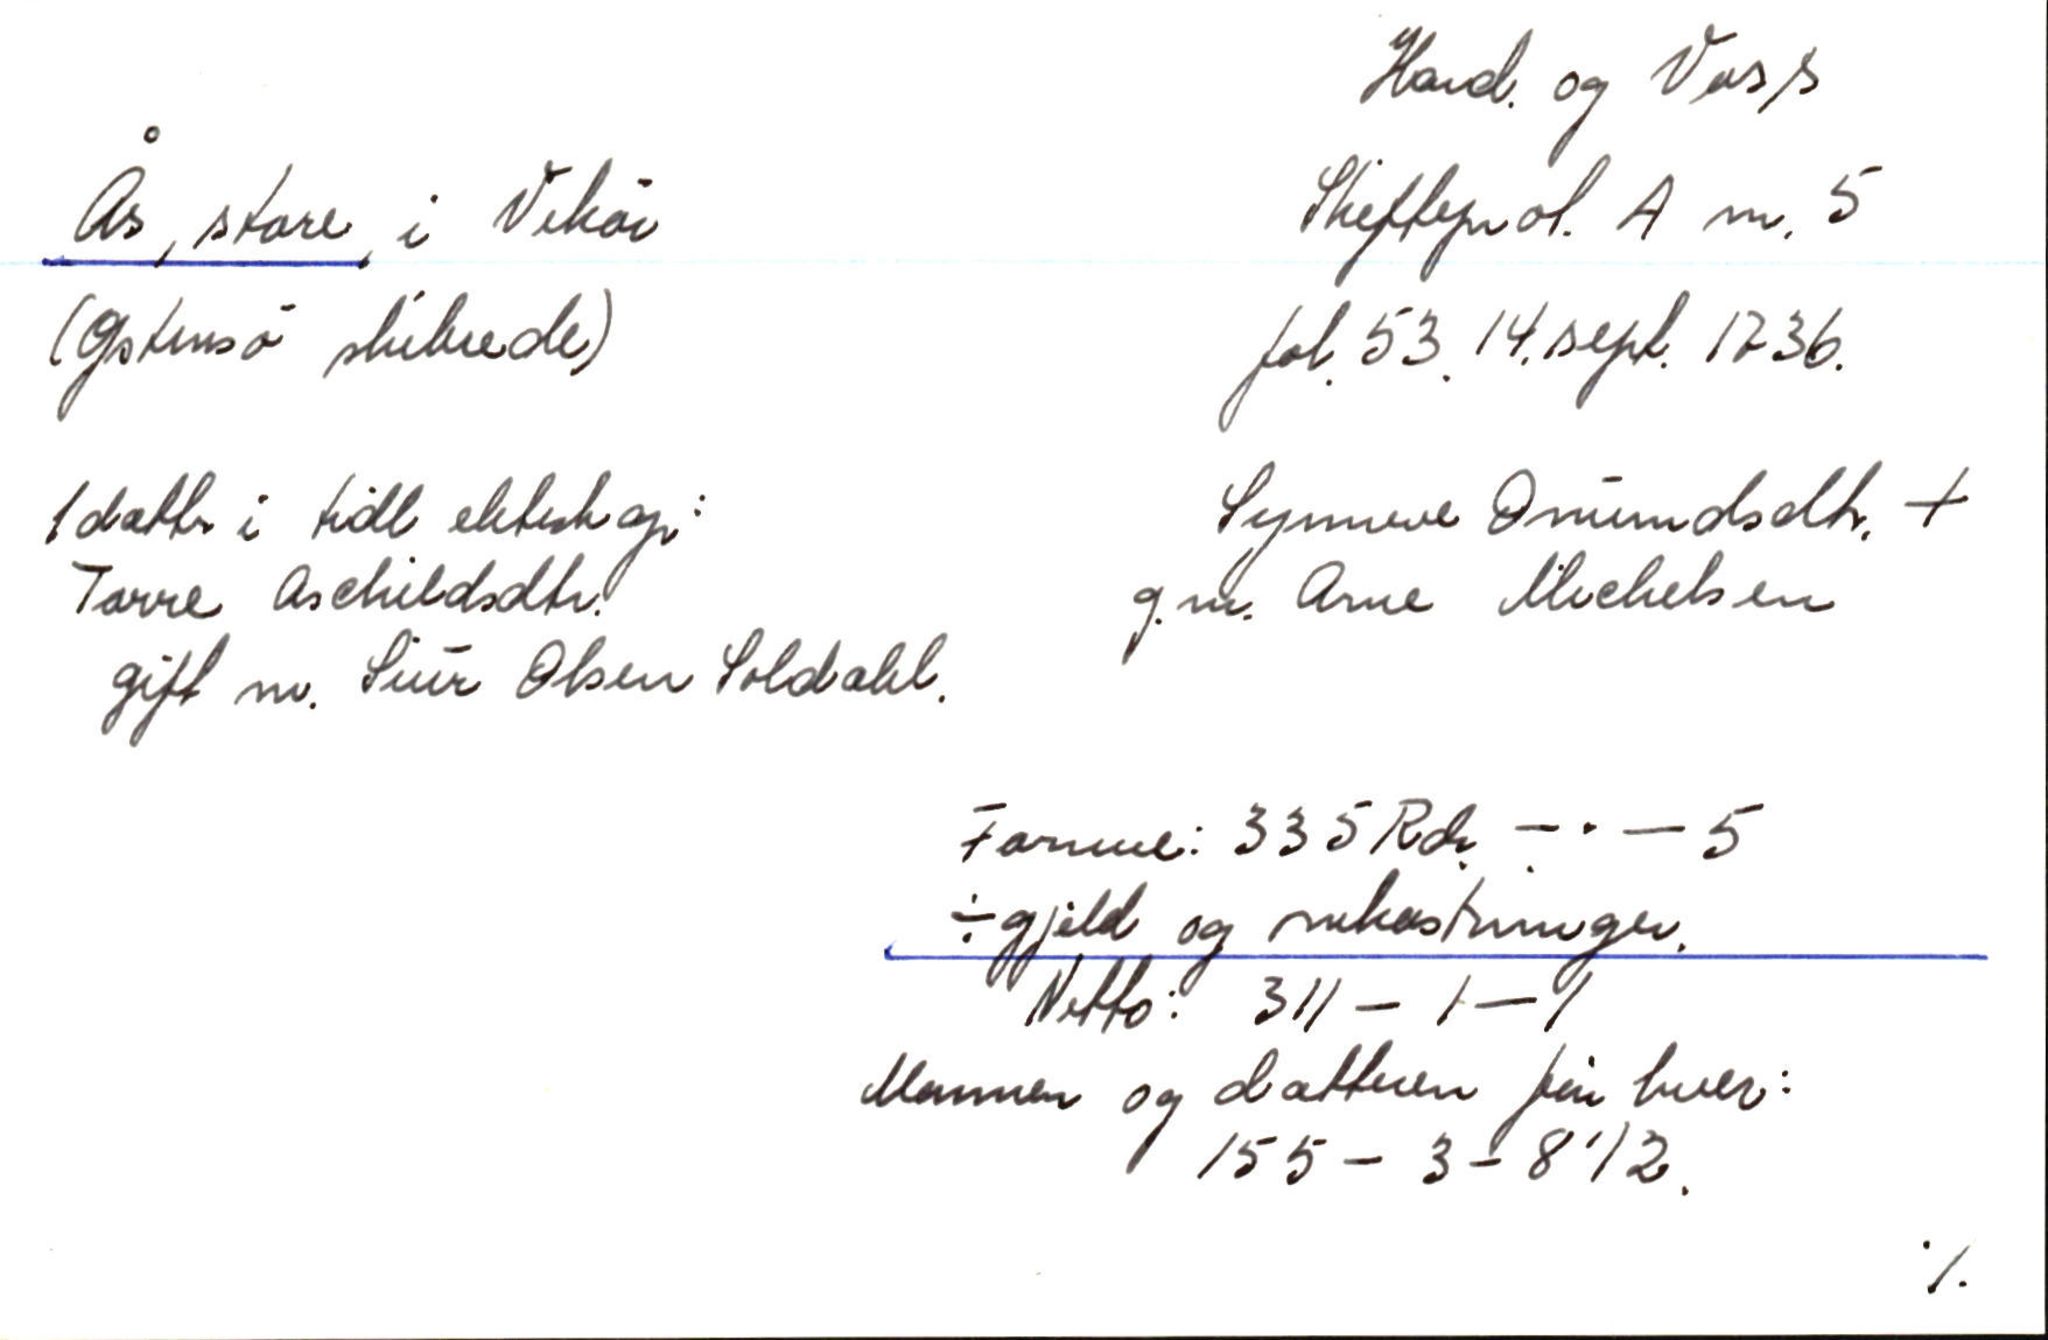 Hard. og Voss
Ås, store, i Vikøi
Skiftepr ot. A nr. 5
(Østensø skibrede)
fol. 53. 14. sept. 1736.
1 dattr i tidl ekteskap:
Synneve Onundsdtr. +
Torre Aschildsdtr.
g.m. Arne Michelsen
gift m. Siur Olsen Soldahl.
Formue: 335 Rdr. — . — 5
÷ gjeld og omkostninger.
Netto: 311 — 1 — 1
Mannen og datteren får hver:
155 — 3 — 8 1/2.
./.